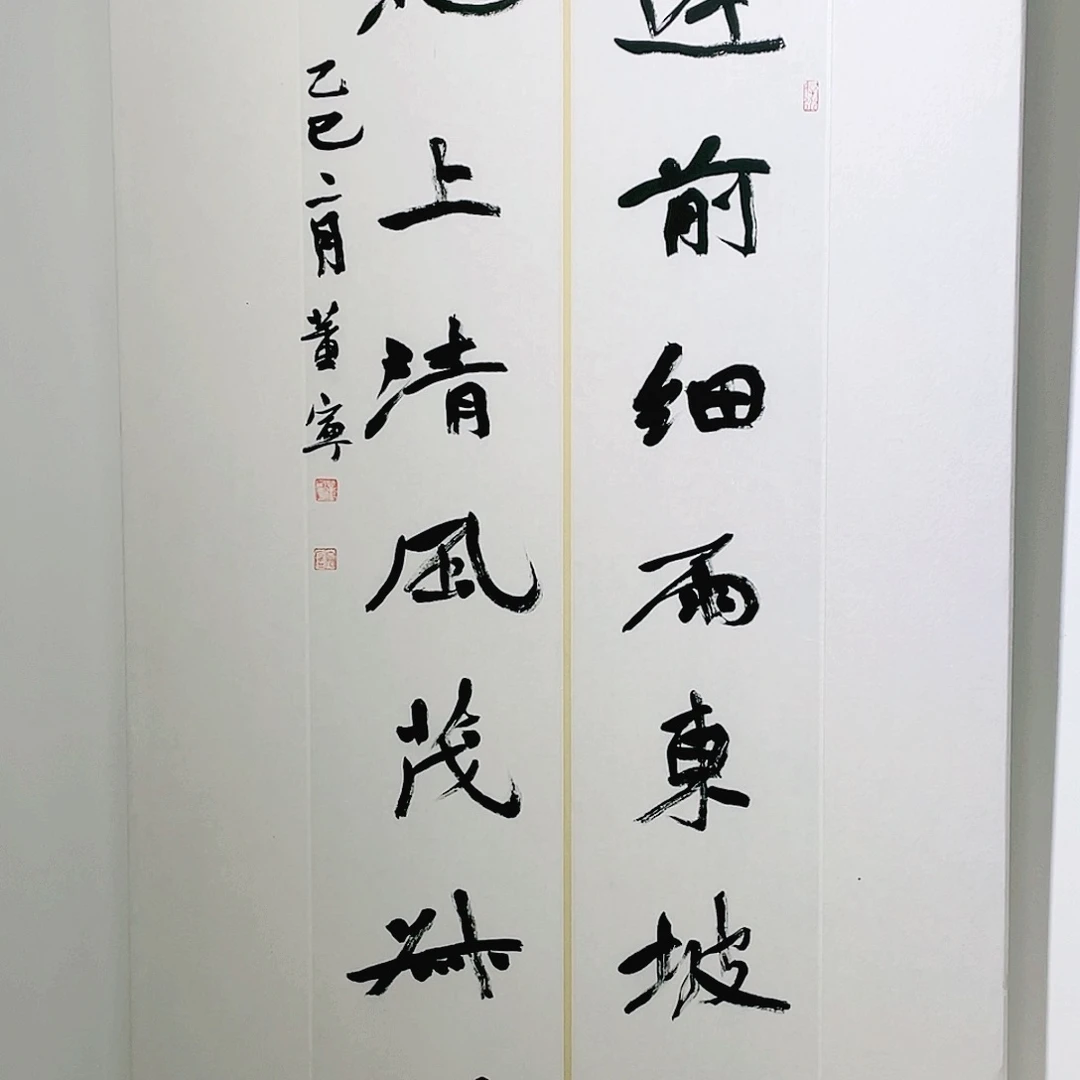 前细雨東坡
上清風茂叔
乙巳二月 董寧